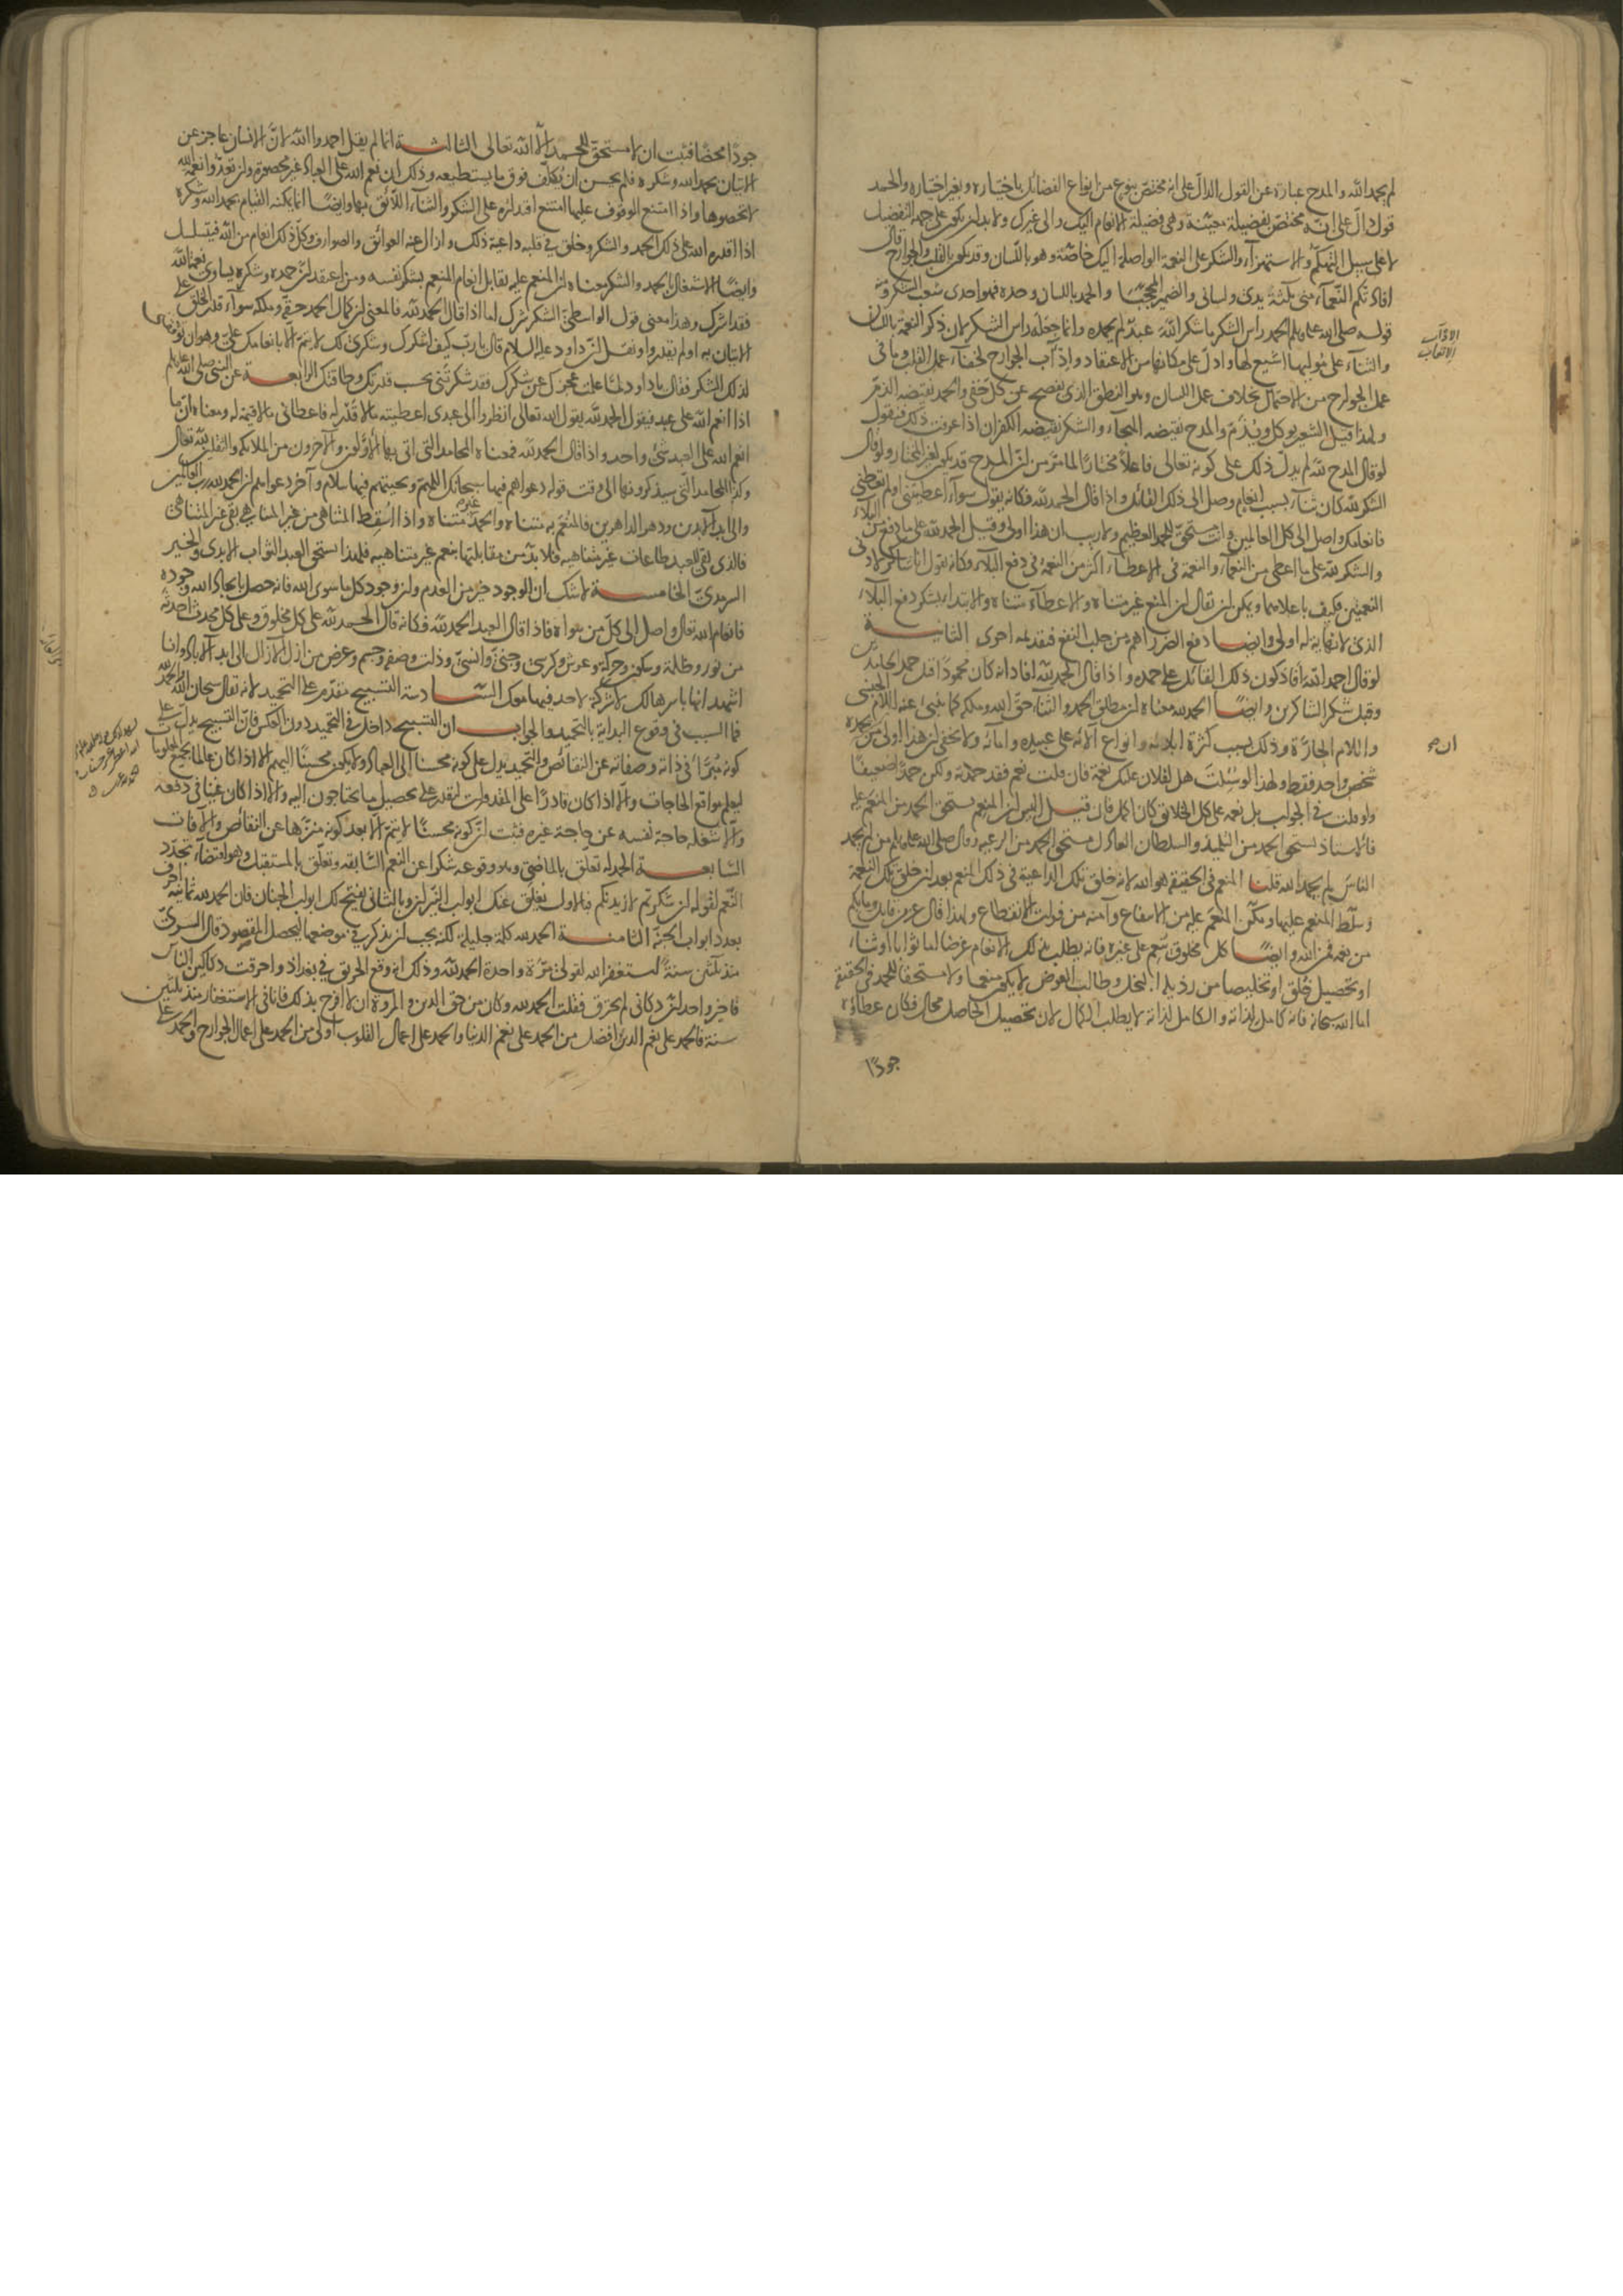 لم يحمد الله والمدح عبارة عن القول الدال على انه مختص بنوع من انواع الفضائل باختياره وبغير اختياره والحمد
قول دال على انه مختص بفضيلة معينة وهى فضيلة الانعام اليك والى غيرك ولا بد ان يكون على جهة التفضيل
لا على سبيل التهكم والاستهزآء والشكر على النعمة الواصلة اليك خاصة وهو باللسان وقد يكون بالقلب والجوارح قال
افادتكم النعمآء منى ثلثة يدى ولسانى والضمير المحجبا والحمد باللسان وحده فهو احدى شعب الشكر ومنه
قوله صلى الله عليه وسلم الحمد راس الشكر ما شكر الله عبد لم يحمده وانما جعله راس الشكر لان ذكر النعمة باللسان
والثنآء على موليها اشيع لها وادل على مكانها من الاعتقاد وادآب الجوارح لخفآء عمل القلب وما فى
عمل الجوارح من الاحتمال بخلاف عمل اللسان وهو النطق الذى يفصح عن كل خفى والحمد نقيضه الذم
ولهذا قيل الشعير يوكل ويذم والمدح نقيضه الهجآء والشكر نقيضه الكفران اذا عرفت ذلك فنقول
لو قال المدح لله لم يدل ذلك على كونه تعالى فاعلا مختارا لما مر من ان المدح قد يكون لغير المختار ولو قال
الشكر لله كان ثنآء بسبب انعام وصل الى ذلك القائل واذا قال الحمد لله فكانه يقول سوآء اعطيتنى او لم تعطنى
فانعامك واصل الى كل العالمين وانت مستحق للحمد العظيم ولا ريب ان هذا اولى وقيل الحمد لله على ما دفع من البلآء
والشكر لله على ما اعطى من النعمآء والنعمة فى الاعطآء اكثر من النعمة فى دفع البلآء وكانه يقول انا شاكر لادنى
النعمتين فكيف باعلاهما ويمكن ان يقال ان المنع غير متناه والاعطآء متناه والابتدآء بشكر دفع البلآء
الذى لا نهاية له اولى وايضا دفع الضرر اهم من جلب النفع فتقديمه احرى الثانيـة
لو قال احمد الله افاد كون ذلك القائل على حمده واذا قال الحمد لله افاد انه كان محمودا قبل حمد الحامدين
وقبل شكر الشاكرين وايضا الحمد لله معناه ان مطلق الحمد والثنآء حق الله وملكه كما ينبئ عنه اللام الجنسى
واللام الجارة وذلك بسبب كثرة ايلائه وانواع آلائه على عبيده وامائه ولا يخفى ان هذا اولى من حمده
شخص واحد فقط ولهذا لو سئلت هل لفلان عليك نعمة فان قلت نعم فقد حمدته ولكن حمدا ضعيفا
ولو قلت فى الجواب بل نعمه على كل الخلائق كان اكمل فان قيل اليس ان المنعم يستحق الحمد من المنعم عليه
فالاستاذ يستحق الحمد من التلميذ والسلطان العادل يستحق الحمد من الرعية وقال صلى الله عليه وسلم من لم يحمد
الناس لم يحمد الله قلنا المنعم فى الحقيقة هو الله لانه خلق تلك الداعية فى ذلك المنعم بعد ان خلق تلك النعمة
وسلط المنعم عليها ومكن المنعم عليه من الانتفاع وآمنه من فوات الانقطاع ولهذا قال عز من قائل وما بكم
من نعمة فمن الله وايضا كل مخلوق ينعم على غيره فانه يطلب بذلك الانعام عرضا اما ثوابا او ثنآء
او تحصيل خلق او تخليصا من رذيلة البخل وطالب العوض لا يكون منعما ولا مستحقا للحمد فى الحقيقة
اما الله سبحانه فانه كامل لذاته والكامل لذاته لا يطلب الكمال لان تحصيل الحاصل محال فكان عطاؤه
جودا
الادآب
الاتعاب
ان صح
جودا محضا فثبت ان لا مستحق للحمد الا الله تعالى الثالثـة انما لم يقل احمدوا الله لان الانسان عاجز عن
الاتيان بحمد الله وشكره فلم يحسن ان يكلف فوق ما يستطيعه وذلك ان نعم الله على العباد غير محصورة وان تعدوا نعمة الله
لا تحصوها واذا امتنع الوقوف عليها امتنع اقتداره على الشكر والثنآء اللائق بها وايضا انما يمكنه القيام بحمد الله وشكره
اذا اقدره الله على ذلك الحمد والشكر وخلق فى قلبه داعية ذلك وازال عنه العوائق والصوارف وكل ذلك انعام من الله فيتسلسل
وايضا الاشتغال بالحمد والشكر معناه ان المنعم عليه يقابل انعام المنعم بشكر نفسه ومن اعتقد ان حمده وشكره يساوى نعم الله
فقد اشرك وهذا معنى قول الواسطى الشكر شرك اما اذا قال الحمد لله فالمعنى ان كمال الحمد حقه وملكه سوآء قدر الخلق على
الاتيان به او لم يقدروا ونقل ان داود عليه السلام قال يا رب كيف اشكرك وشكرى لك لا يتم الا بانعامك على وهو ان توفقنى
لذلك الشكر فقال يا داود لما علمت عجزك عن شكرى فقد شكرتنى بحسب قدرتك وطاقتك الرابعـة عن النبى صلى الله عليه وسلم
اذا انعم الله على عبد فيقول الحمد لله يقول الله تعالى انظروا الى عبدى اعطيته ما لا قدر له فاعطانى ما لا قيمة له ومعناه ان ما
انعم الله على العبد شئ واحد واذا قال الحمد لله فمعناه المحامد التى اتى بها الاولون والآخرون من الملائكة والثقلين لله تعالى
وكذا المحامد التى سيذكرونها الى وقت قوله دعواهم فيها سبحانك اللهم وتحيتهم فيها سلام وآخر دعواهم ان الحمد لله رب العالمين
والى ابد الآبدين ودهر الداهرين فالمنعم به متناه والحمد غير متناه واذا اسقط المتناهى من غير المتناهى بقى غير المتناهى
فالذى بقى للعبد طاعات غير متناهية فلا بد من مقابلتها بنعم غير متناهية فلهذا استحق العبد الثواب الابدى والخير
السرمدى الخامسـة لا شك ان الوجود خير من العدم وان وجود كل ما سوى الله فانه حصل بايجاد الله وجوده
فانعام الله تعالى واصل الى كل من سواه فاذا قال العبد الحمد لله فكانه قال الحمد لله على كل مخلوق وعلى كل محدث احدثه
من نور وظلمة وسكون وحركة وعرش وكرسى وجنى وانسى وذات وصفة وجسم وعرض من ازل الآزال الى ابد الآباد وانا
اشهد انها باسرها لك لا شركة لاحد فيها معك السادسة التسبيح مقدم على التحميد لانه يقال سبحان الله والحمد لله
فما السبب فى وقوع البداية بالتحميد والجواب ان التسبيح داخل فى التحميد دون العكس فان التسبيح يدل على
كونه مبرءا فى ذاته وصفاته عن النقائص والتحميد يدل على كونه محسنا الى العباد ولا يكون محسنا اليهم الا اذا كان عالما بجميع المعلومات
ليعلم مواقع الحاجات والا اذا كان قادرا على المقدورات ليقدر على تحصيل ما يحتاجون اليه والا اذا كان غنيا فى نفسه
والا شغله حاجة نفسه عن حاجة غيره فثبت ان كونه محسنا لا يتم الا بعد كونه منزها عن النقائص والآفات
السابعـة الحمد له تعلق بالماضى وهو وقوعه شكرا عن النعم السابقة وتعلق بالمستقبل وهو اقتضآء تجدد
النعم لقوله لئن شكرتم لازيدنكم فبالاول يغلق عنك ابواب النيران وبالثانى يفتح لك ابواب الجنان فان الحمد لله ثمانية احرف
بعدد ابواب الجنة الثامنـة الحمد لله كلمة جليلة لكنه يجب ان يذكر فى موضعها ليحصل المقصود قال السرى
منذ ثلثين سنة استغفر الله لقولى مرة واحدة الحمد لله وذلك انه وقع الحريق فى بغداد واحرقت دكاكين الناس
فاخبر واحد ان دكانى لم يحترق فقلت الحمد لله وكان من حق الدين والمروة ان لا افرح بذلك فانا فى الاستغفار منذ ثلثين
سنة فالحمد على نعم الدين افضل من الحمد على نعم الدنيا والحمد على اعمال القلوب اولى من الحمد على اعمال الجوارح والحمد على